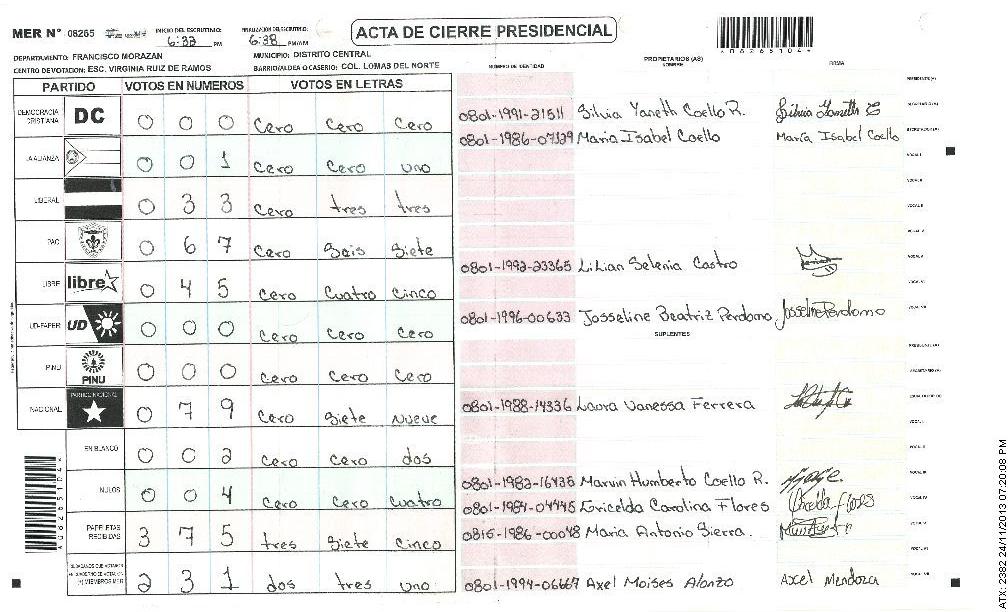 MER N° 08265 INICIO DEL ESCRUTINIO: 6:33 PM FINALIZACION DEL ESCRUTINIO: 6:38 PM/AM ACTA DE CIERRE PRESIDENCIAL
A082651044
DEPARTAMENTO: FRANCISCO MORAZAN MUNICIPIO: DISTRITO CENTRAL
CENTRO DE VOTACION: ESC. VIRGINIA RUIZ DE RAMOS BARRIO/ALDEA O CASERIO: COL. LOMAS DEL NORTE
PARTIDO VOTOS EN NUMEROS VOTOS EN LETRAS
DEMOCRACIA CRISTIANA DC 0 0 0 Cero Cero Cero
LA ALIANZA 0 0 1 Cero Cero uno
LIBERAL 0 3 3 Cero tres tres
PAC 0 6 7 Cero Seis Siete
LIBRE libre 0 4 5 Cero Cuatro Cinco
UD-FAPER UD 0 0 0 Cero Cero Cero
PINU PINU 0 0 0 Cero Cero Cero
NACIONAL PARTIDO NACIONAL 0 7 9 Cero Siete Nueve
EN BLANCO 0 0 2 Cero Cero dos
NULOS 0 0 4 Cero Cero Cuatro
PAPELETAS RECIBIDAS 3 7 5 tres Siete Cinco
CIUDADANOS QUE VOTARON 2 3 1 dos tres uno
NUMERO DE IDENTIDAD PROPIETARIOS (AS) NOMBRE FIRMA
PRESIDENTE(A)
0801-1991-21511 Silvia Yaneth Coello R. Silvia Yaneth C SECRETARIO(A)
0801-1986-07129 Maria Isabel Coello María Isabel Coello
VOCAL I
VOCAL II
VOCAL III
VOCAL IV
0801-1992-23365 Lilian Selenia Castro VOCAL V
VOCAL VI
0801-1996-00633 Josseline Beatriz Perdomo Josseline Perdomo VOCAL VII
SUPLENTES
PRESIDENTE(A)
SECRETARIO(A)
0801-1988-14336 Laura Vanessa Ferrera
VOCAL I
VOCAL II
0801-1982-16438 Marvin Humberto Coello R. VOCAL III
0801-1984-04445 Gricelda Carolina Flores VOCAL IV
0815-1986-00048 Maria Antonio Sierra. VOCAL V
VOCAL VI
0801-1994-06667 Axel Moises Alonzo Axel Mendoza VOCAL VII
ATX: 2382 24/11/2013 07:20:08 PM